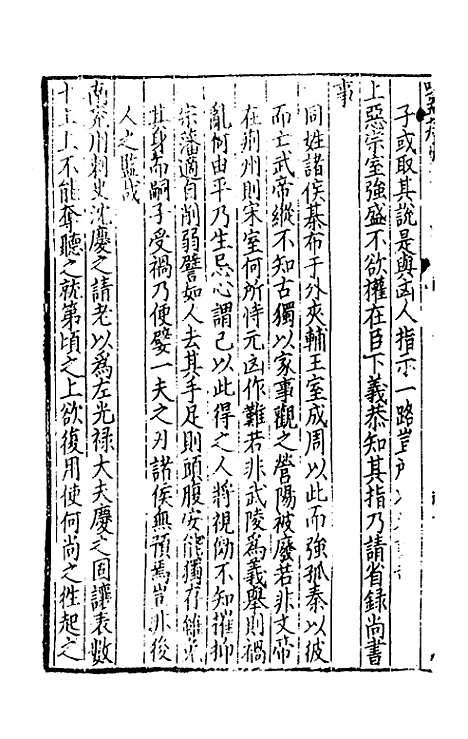 子或取其說是與凶人指示一路豈
上惡宗室強盛不欲權在臣下義恭知其指乃請省錄尚書
事
同姓諸侯棊布于外夾輔王室成周以此而強孤秦以彼
而亡武帝縱不知古獨以家事觀之營陽被廢若非文帝
在荊州則宋室何所恃元凶作難若非武陵爲義舉則禍
亂何由平乃生忌心謂己以此得之人將視劾不知摧抑
宗藩適自削弱譬如人去其手足則頭腹安能獨存
其身而嗣子受禍乃使嬖一夫之刃諸侯無預焉豈非後
人之監戒
南兗州刺史沈慶之請老以爲左光祿大夫慶之固讓表數
十上上不能奪聽之就第頃之上欲復用使何尚之往起之